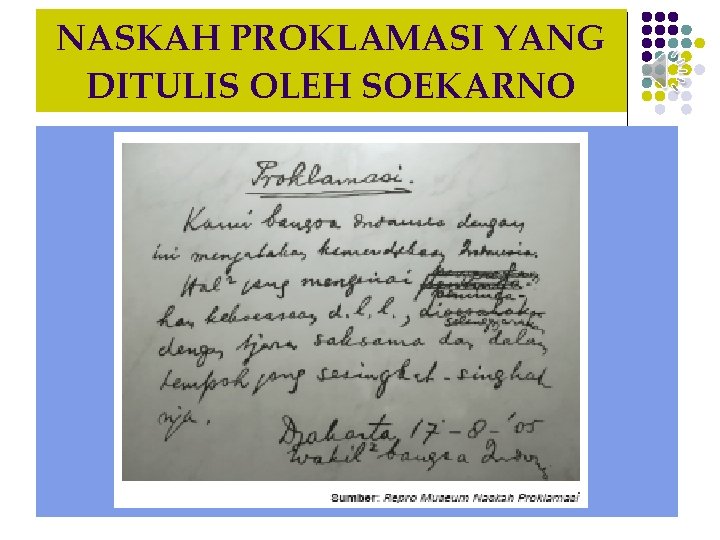 NASKAH PROKLAMASI YANG
DITULIS OLEH SOEKARNO
Proklamasi.
Kami bangsa Indonesia dengan
ini menjatakan kemerdekaan Indonesia.
Hal² jang mengenai
peminda-
han kekoeasaan, d.l.l., dioesahakan
selenggarakan
dengan tjara saksama dan dalam
tempoh jang sesingkat-singkat
nja.
Djakarta, 17-8-'05
Wakil² bangsa Indon
Sumber: Repro Museum Naskah Proklamasi